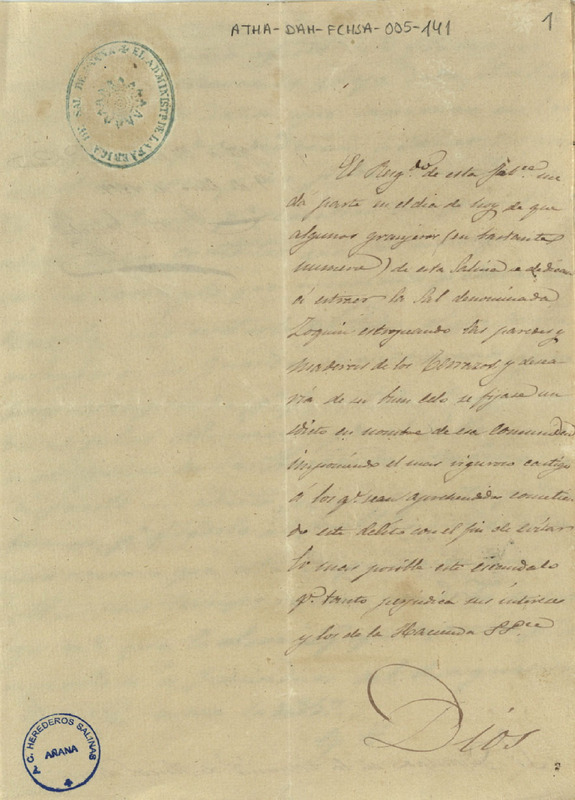 ATHA-DAH-FCHSA-005-141
1
EL ADMINIST. DE LA FABRICA DE SAL DE AÑANA
El Resg.do de esta Fab.ca me
da parte en el dia de hoy de que
algunos granjeros (en bastante
numero) de esta Salina se dedican
á estraer la Sal denominada
Zoquin estropeando las paredes y
maderas de los Terrazos, y desea
ria de su buen celo se fijase un
edicto en nombre de esa Comunidad
imponiendo el mas riguroso castigo
á los q.e sean aprehendidos cometien
do este delito con el fin de evitar
lo mas posible este escandalo
q.e tanto perjudica sus intereses
y los de la Hacienda
Dios
C. HEREDEROS SALINAS
AÑANA